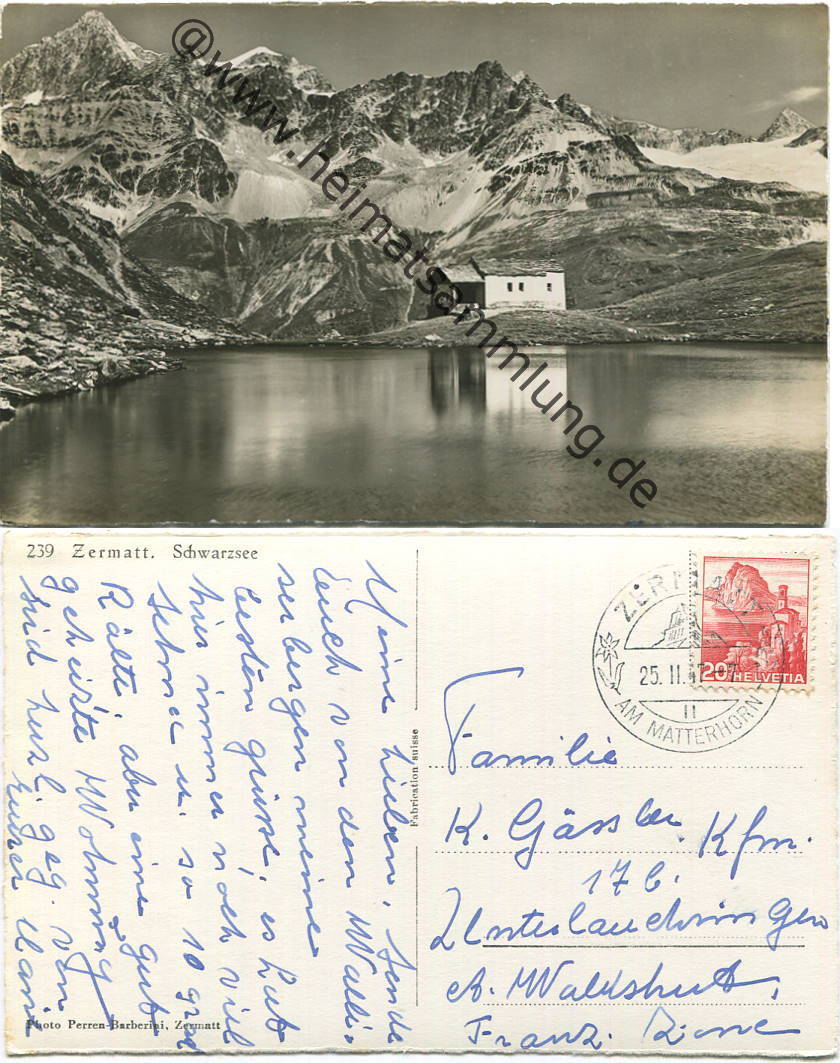 @www.heimatsammlung.de
239 Zermatt. Schwarzsee
Meine Lieben, sende
Euch von den Walli-
serbergen meine
besten Grüsse, es hat
hier immer noch viel
Schnee u. so 10 grad
Kälte, aber eine gut
geheizte Wohnung
Sind herzl. geg. von
Eurer
Photo Perren-Barberini, Zermatt
Fabrication suisse
ZERMATT
25. II. 47
II
AM MATTERHORN
20 HELVETIA
Familie
K. Gässler Kfm.
17 b.
Unterlauchringen
b. Waldshut,
Franz. Zone